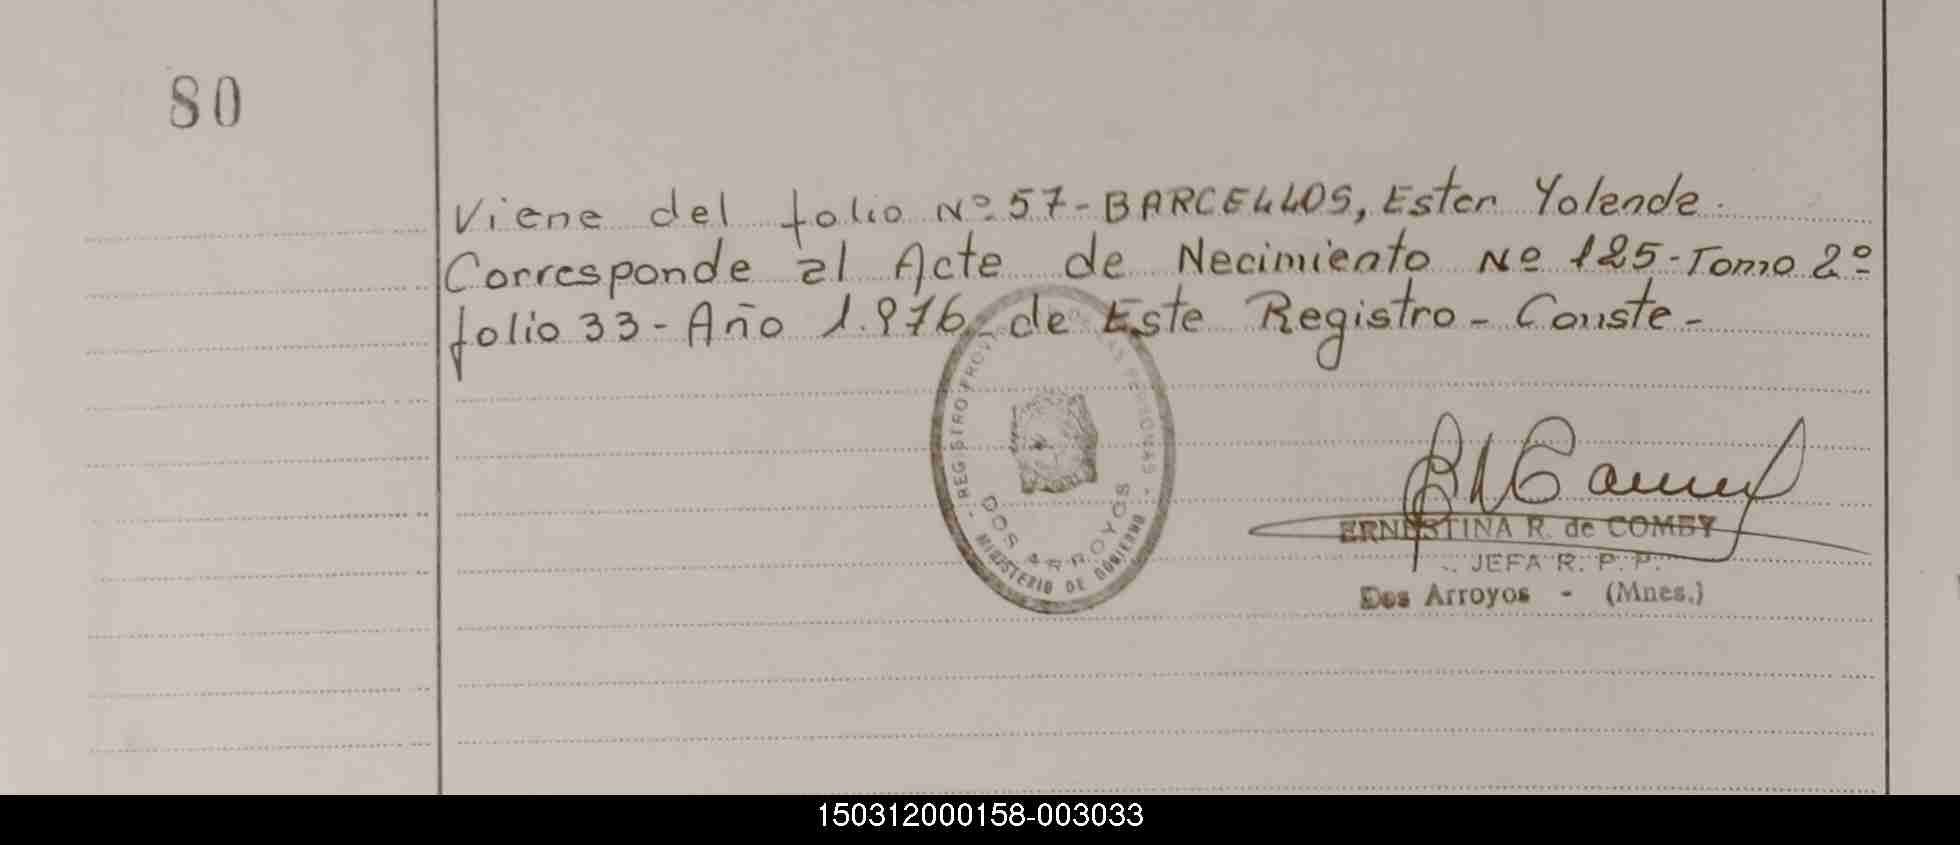 80
Viene del folio Nº 57 - BARCELLOS, Ester Yolanda.
Corresponde al Acta de Nacimiento Nº 125 - Tomo 2º
folio 33 - Año 1.976 - de Este Registro - Conste -
- REGISTRO PROVI LAS PERSONAS -
DOS ARROYOS
MINISTERIO DE GOBIERNO
ERNESTINA R. de COMBY
JEFA R. P. P.
Dos Arroyos - (Mnes.)
150312000158-003033